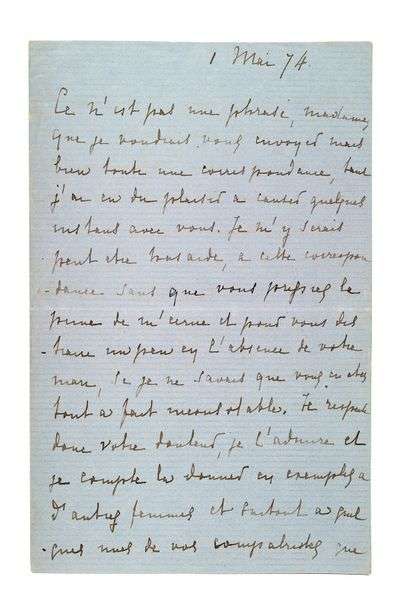 1 Mai 74.
Ce n'est pas une phrase, madame,
que je voudrais vous envoyer mais
bien toute une correspondance, tant
j'ai eu du plaisir a causer quelques
instans avec vous. Je m'y serais
peut etre hasardé, a cette correspon
dance sans que vous preniez la
peine de m'ecrire et pour vous dis
traire un peu en l'absence de votre
mari, si je ne savais que vous en etes
tout a fait inconsolable. Je respecte
donc votre douleur, je l'admire et
je compte la donner en exemple a
d'autres femmes et surtout a quel
ques unes de vos compatriotes que